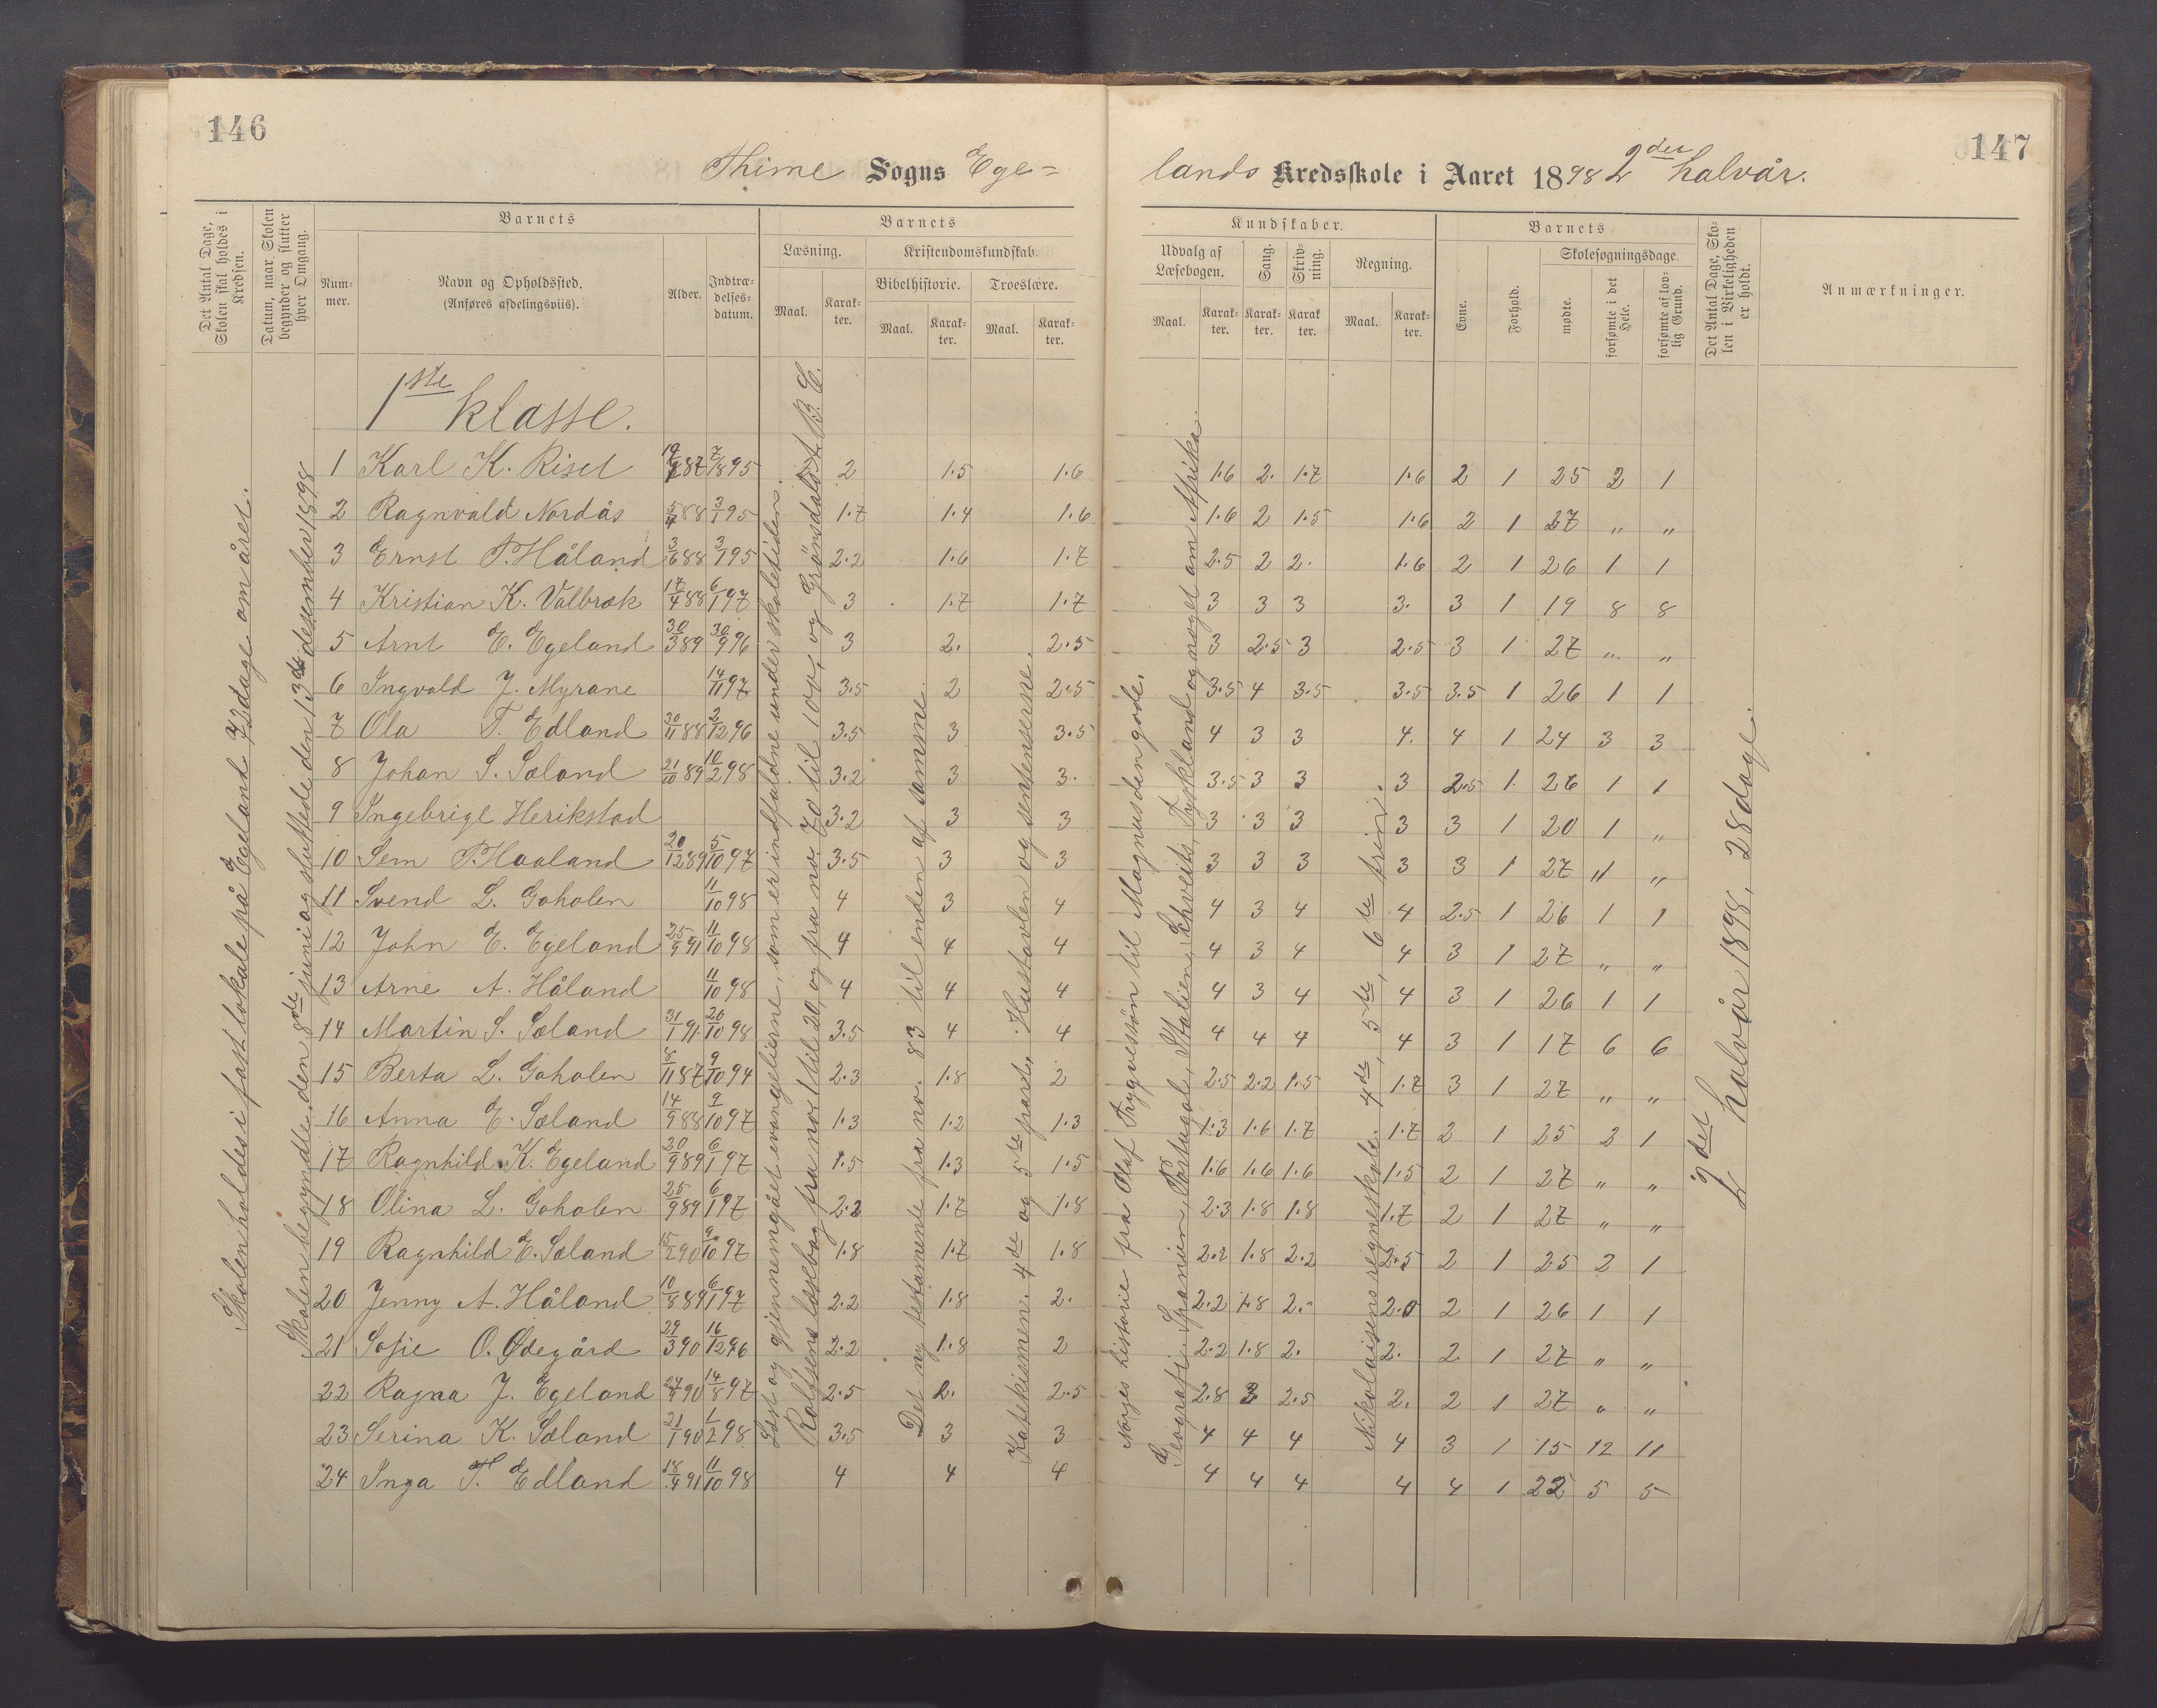 146
Thime Sogns Ege=
Det Antal Dage, Skolen skal holdes i Kredsen.
Datum, naar Skolen begynder og slutter hver Omgang.
Barnets
Nummer.
Navn og Opholdssted. (Anføres afdelingsviis).
Alder.
Indtrædelsesdatum.
Barnets
Læsning.
Kristendomskundskab.
Bibelhistorie.
Troeslære.
Maal. Karakter. Maal. Karakter. Maal. Karakter.
Skolen holdes i fast lokale på Egeland 72 dage om året.
Skolen begyndte den 8de juni og sluttede den 13de desember 1898
1ste klasse.
1 Karl K. Riset 19/9 87 7/1 895 2 1.5 1.6
2 Ragnvald Nordås 5/4 88 3/1 95 1.7 1.4 1.6
3 Ernst P. Håland 3/6 88 3/1 95 2.2 1.6 1.7
4 Kristian K. Valbræk 17/4 88 6/1 97 3 1.7 1.7
5 Arnt E. Egeland 30/3 89 30/9 96 3 2. 2.5
6 Ingvald J. Myrane 14/11 97 3.5 2 2.5
7 Ola T. Edland 30/11 88 2/12 96 3.5 3 3.5
8 Johan S. Sæland 21/10 89 10/2 98 3.2 3 3.
9 Ingebrigt Herikstad 3.2 3 3
10 Sem P. Haaland 20/12 89 5/10 97 3.5 3 3
11 Svend L. Gaholen 11/10 98 4 3 4
12 John E. Egeland 25/9 91 11/10 98 4 4 4
13 Arne A. Håland 11/10 98 4 4 4
14 Martin S. Sæland 31/1 91 26/10 98 3.5 4 4
15 Berta L. Gaholen 18/11 87 9/10 94 2.3 1.8 2
16 Anna E. Sæland 14/9 88 9/10 97 1.3 1.2 1.3
17 Ragnhild K. Egeland 20/9 89 6/1 97 1.5 1.3 1.5
18 Olina L. Gaholen 25/9 89 6/1 97 2.2 1.7 1.8
19 Ragnhild E. Sæland 15/2 90 9/10 97 1.8 1.7 1.8
20 Jenny A. Håland 10/8 89 6/1 97 2.2 1.8 2.
21 Sofie O. Ødegård 29/3 90 16/12 96 2.2 1.8 2
22 Ragna J. Egeland 24/4 90 14/8 97 2.5 2. 2.5
23 Serina K. Sæland 21/1 90 1/2 98 3.5 3 3
24 Inga T. Edland 18/4 91 11/10 98 4 4 4
Læst og gjennemgået evangelierne, som er indfaldne under skoletiden.
Rolfsens læsebog fra no. 1 til 20, og fra no. 70 til 100, og Grøndals A. B. C.
Det ny testamente fra no. 83 til enden af samme.
Katekismen: 4de og 5te part, Hustavlen og sentenserne.
147
lands Kredsskole i Aaret 1898 2det halvår.
Kundskaber.
Udvalg af Læsebogen.
Sang.
Skrivning.
Regning.
Maal. Karakter. Karakter. Karakter. Maal. Karakter.
Barnets
Evne.
Forhold.
Skolesøgningsdage.
mødte.
forsømte i det Hele.
forsømte af lovlig Grund.
Det Antal Dage, Skolen i Virkeligheden er holdt.
Anmærkninger.
1.6 2. 1.7 1.6 2 1 25 2 1
1.6 2 1.5 1.6 2 1 27 " "
2.5 2 2. 1.6 2 1 26 1 1
3 3 3 3. 3 1 19 8 8
3 2.5 3 2.5 3 1 27 " "
3.5 4 3.5 3.5 3.5 1 26 1 1
4 3 3 4. 4 1 24 3 3
3.5 3 3 3 2.5 1. 26 1 1
3 3 3 3 3 1 20 1 "
3 3 3 3 3 1 27 " "
4 3 4 4 2.5 1 26 1 1
4 3 4 4 3 1 27 " "
4 3 4 4 3 1 26 1 1
4 4 4 4 3 1 17 6 6
2.5 2.2 1.5 1.7 3 1 27 " "
1.3 1.6 1.7 1.7 2 1 25 2 1
1.6 1.6 1.6 1.5 2 1 27 " "
2.3 1.8 1.8 1.7 2 1 27 " "
2.2 1.8 2.2 2.5 2 1 25 2 1
2.2 1.8 2. 2.0 2 1 26 1 1
2.2 1.8 2. 2. 2 1 27 " "
2.8 2 2.5 2. 2 1 27 " "
4 4 4 4 3 1 15 12 11
4 4 4 4 4 1 22 5 5
Norges historie fra Olaf Trygvessøn til Magnus den gode.
Geografi: Spanien, Portugal, Italien, Schveits, Tyskland og noget om Afrika.
Nikolaisens regneskole. 4de, 5te, 6te trin
2det halvår 1898, 28 dage.